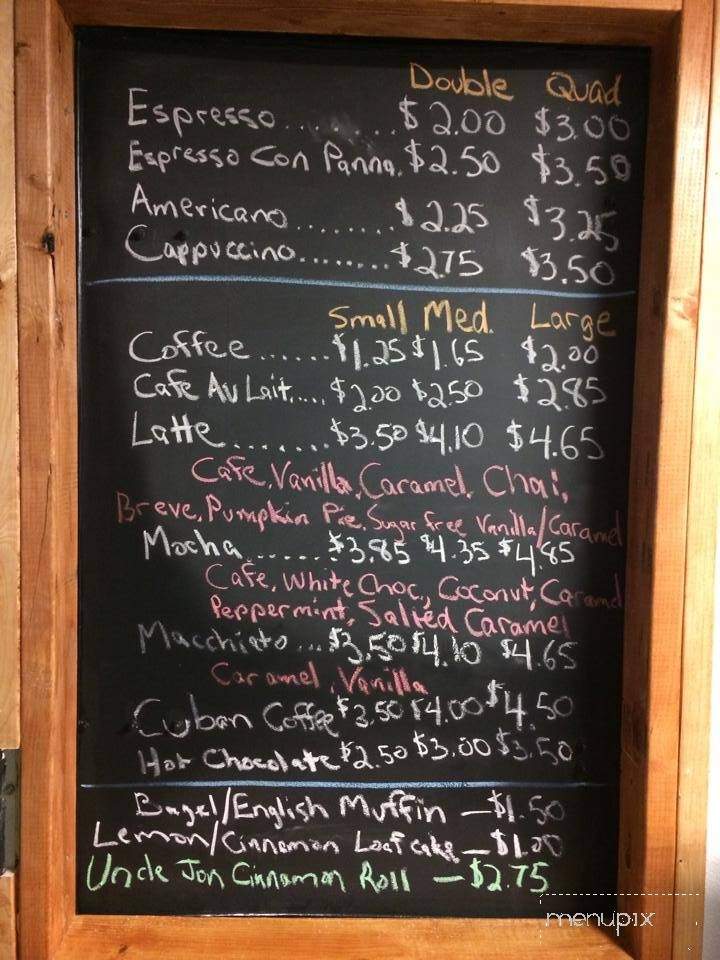 Double Quad
Espresso........$2.00 $3.00
Espresso Con Panna.$2.50 $3.50
Americano........$2.25 $3.25
Cappuccino........$2.75 $3.50
Small Med. Large
Coffee.......$1.25 $1.65 $2.00
Cafe Au Lait....$2.00 $2.50 $2.85
Latte.......$3.50 $4.10 $4.65
Cafe, Vanilla, Caramel, Chai,
Breve, Pumpkin Pie, Sugar free Vanilla/Caramel
Mocha......$3.85 $4.35 $4.85
Cafe, White Choc., Coconut, Caramel
Peppermint, Salted Caramel
Macchiato...$3.50 $4.10 $4.65
Caramel, Vanilla
Cuban Coffee $3.50 $4.00 $4.50
Hot Chocolate $2.50 $3.00 $3.50
Bagel/English Muffin —$1.50
Lemon/Cinnamon Loaf cake —$1.00
Uncle Jon Cinnamon Roll —$2.75
menupix